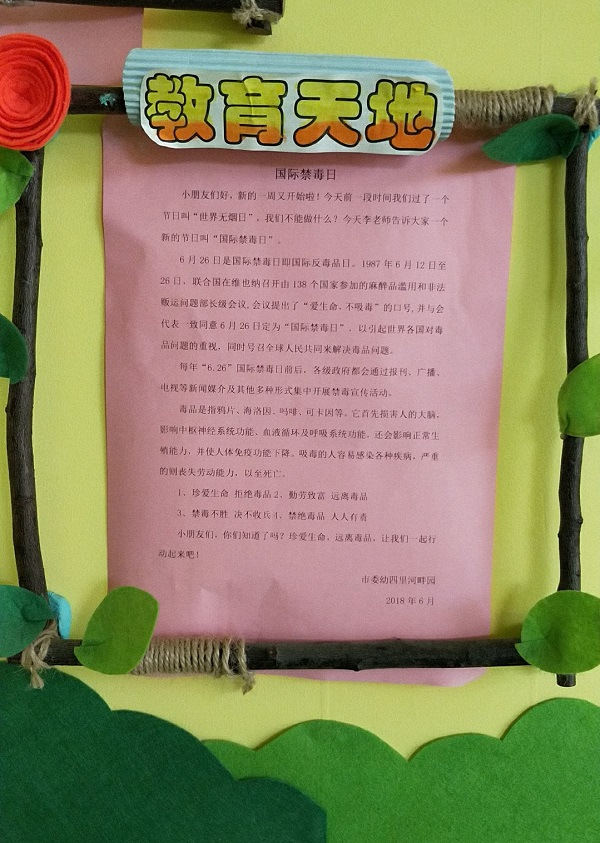 教育天地
国际禁毒日
小朋友们好，新的一周又开始啦！今天前一段时间我们过了一个
节日叫“世界无烟日”，我们不能做什么？今天李老师告诉大家一个
新的节日叫“国际禁毒日”。
6月26日是国际禁毒日即国际反毒品日。1987年6月12日至
26日，联合国在维也纳召开由138个国家参加的麻醉品滥用和非法
贩运问题部长级会议,会议提出了“爱生命，不吸毒”的口号,并与会
代表一致同意6月26日定为“国际禁毒日”，以引起世界各国对毒
品问题的重视，同时号召全球人民共同来解决毒品问题。
每年“6.26”国际禁毒日前后，各级政府都会通过报刊、广播、
电视等新闻媒介及其他多种形式集中开展禁毒宣传活动。
毒品是指鸦片、海洛因、吗啡、可卡因等。它首先损害人的大脑，
影响中枢神经系统功能、血液循环及呼吸系统功能，还会影响正常生
殖能力，并使人体免疫功能下降。吸毒的人容易感染各种疾病，严重
的则丧失劳动能力，以至死亡。
1、珍爱生命 拒绝毒品 2、勤劳致富 远离毒品
3、禁毒不胜 决不收兵 4、禁绝毒品 人人有责
小朋友们，你们知道了吗？珍爱生命，远离毒品，让我们一起行
动起来吧！
市委幼四里河畔园
2018年6月